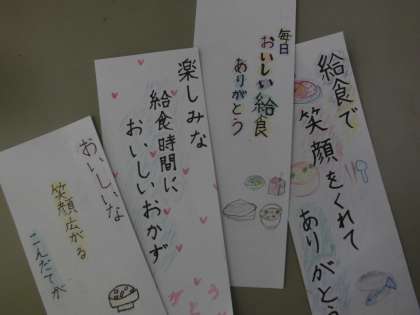 給食で
笑顔をくれて
ありがとう
毎日
おいしい給食
ありがとう
楽しみな
給食時間に
おいしいおかず
おいしいな
笑顔広がる
こんだてが